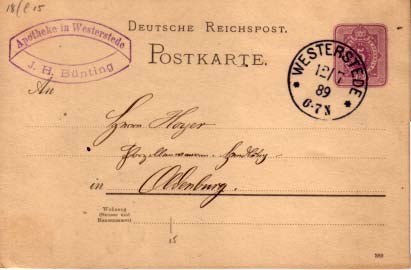 18/8 15
Deutsche Reichspost.
Postkarte.
Apotheke in Westerstede
J. H. Bünting
WESTERSTEDE
12/7
89
6-7N
An
Herrn Hoyer
Porzellanwaaren-Handlung
in Oldenburg.
Wohnung
(Strasse und
Hausnummer)
15